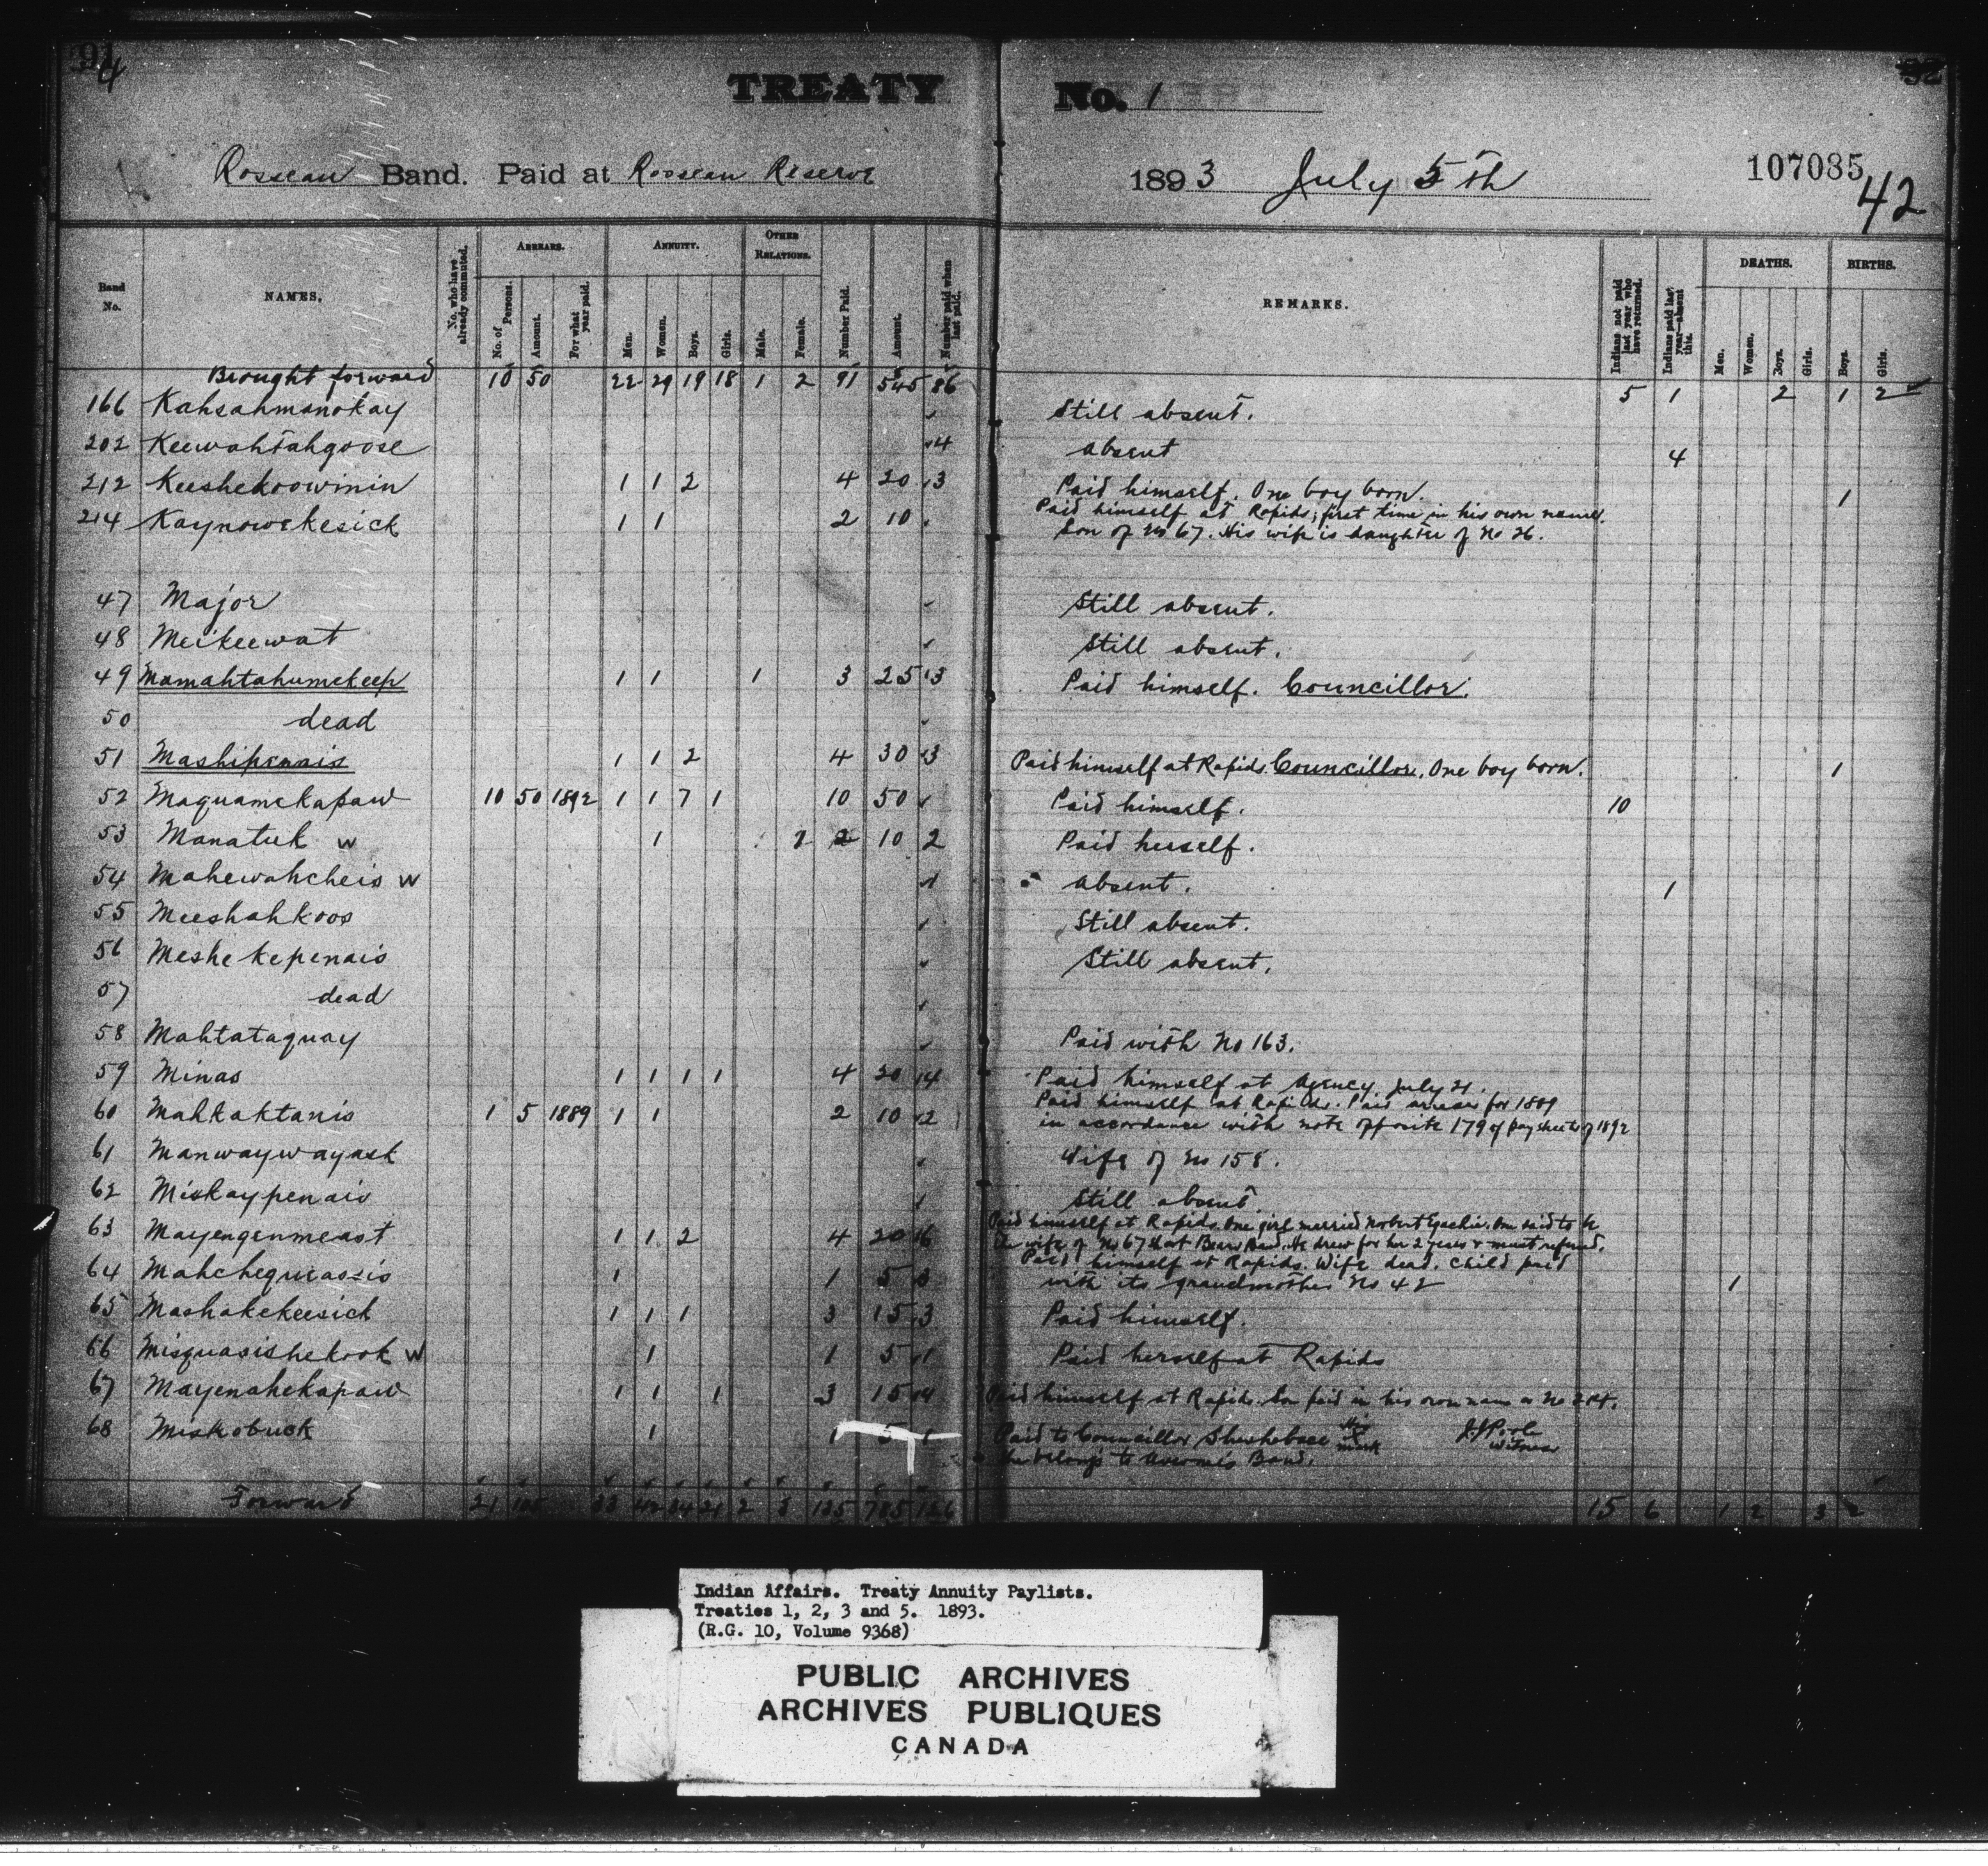 91 4
TREATY No. 1
Rosseau Band. Paid at Rosseau Reserve 1893 July 5th 107085 42
Band No. NAMES. No. who have already commuted. ARREARS. No. of Persons. Amount. For what year paid. ANNUITY. Men. Women. Boys. Girls. OTHER RELATIONS. Male. Female. Number Paid. Amount. Number paid when last paid. REMARKS. Indians not paid last year who have returned. Indians paid last year—absent this. DEATHS. Men. Women. Boys. Girls. BIRTHS. Boys. Girls.
Brought forward 10 50 22 29 19 18 1 2 91 545 86 5 1 2 1 2
166 Kahsahmanokay Still absent.
202 Keewahtahgoose 4 absent 4
212 Keeshekoowinin 1 1 2 4 20 3 Paid himself. One boy born. 1
214 Kaynowekesick 1 1 2 10 Paid himself at Rapids; first time in his own name.
Son of No 67. His wife is daughter of No 26.
47 Major Still absent.
48 Meikeewat Still absent.
49 Mamahtahumekeep 1 1 1 3 25 3 Paid himself. Councillor.
50 dead
51 Mashipenais 1 1 2 4 30 3 Paid himself at Rapids. Councillor. One boy born. 1
52 Maquamekapaw 10 50 1892 1 1 7 1 10 50 Paid himself. 10
53 Manatuk W 1 2 10 2 Paid herself.
54 Mahewahcheis W 1 absent. 1
55 Meeshahkoos Still absent.
56 Meshekepenais Still absent.
57 dead
58 Mahtataquay Paid with No 163.
59 Minas 1 1 1 1 4 20 4 Paid himself at Agency July 21.
60 Mahkaktanis 1 5 1889 1 1 2 10 2 Paid himself at Rapids. Paid arrears for 1889
in accordance with note opposite 179 of pay sheets of 1892
61 Manwaywayask Wife of No 158.
62 Miskaypenais Still absent.
63 Mayengenmeast 1 1 2 4 20 6 Paid himself at Rapids. One girl married One said to be
the wife of No 67 He drew for her 2 years & must refund.
64 Mahchequiassis 1 1 5 3 Paid himself at Rapids. Wife dead. Child paid
with its grandmother No 42 1
65 Mashakekeesick 1 1 1 3 15 3 Paid himself.
66 Misquasishekook W 1 1 5 1 Paid herself at Rapids
67 Mayenahekapaw 1 1 1 3 15 4 Paid himself at Rapids. Son paid in his own name as No 214.
68 Miskobuck 1 1 5 1 Paid to Councillor his x mark witness
She belongs to Band.
Forward 21 105 33 42 34 21 2 3 135 785 126 15 6 1 2 3 2
Indian Affairs. Treaty Annuity Paylists.
Treaties 1, 2, 3 and 5. 1893.
(R.G. 10, Volume 9368)
PUBLIC ARCHIVES
ARCHIVES PUBLIQUES
CANADA